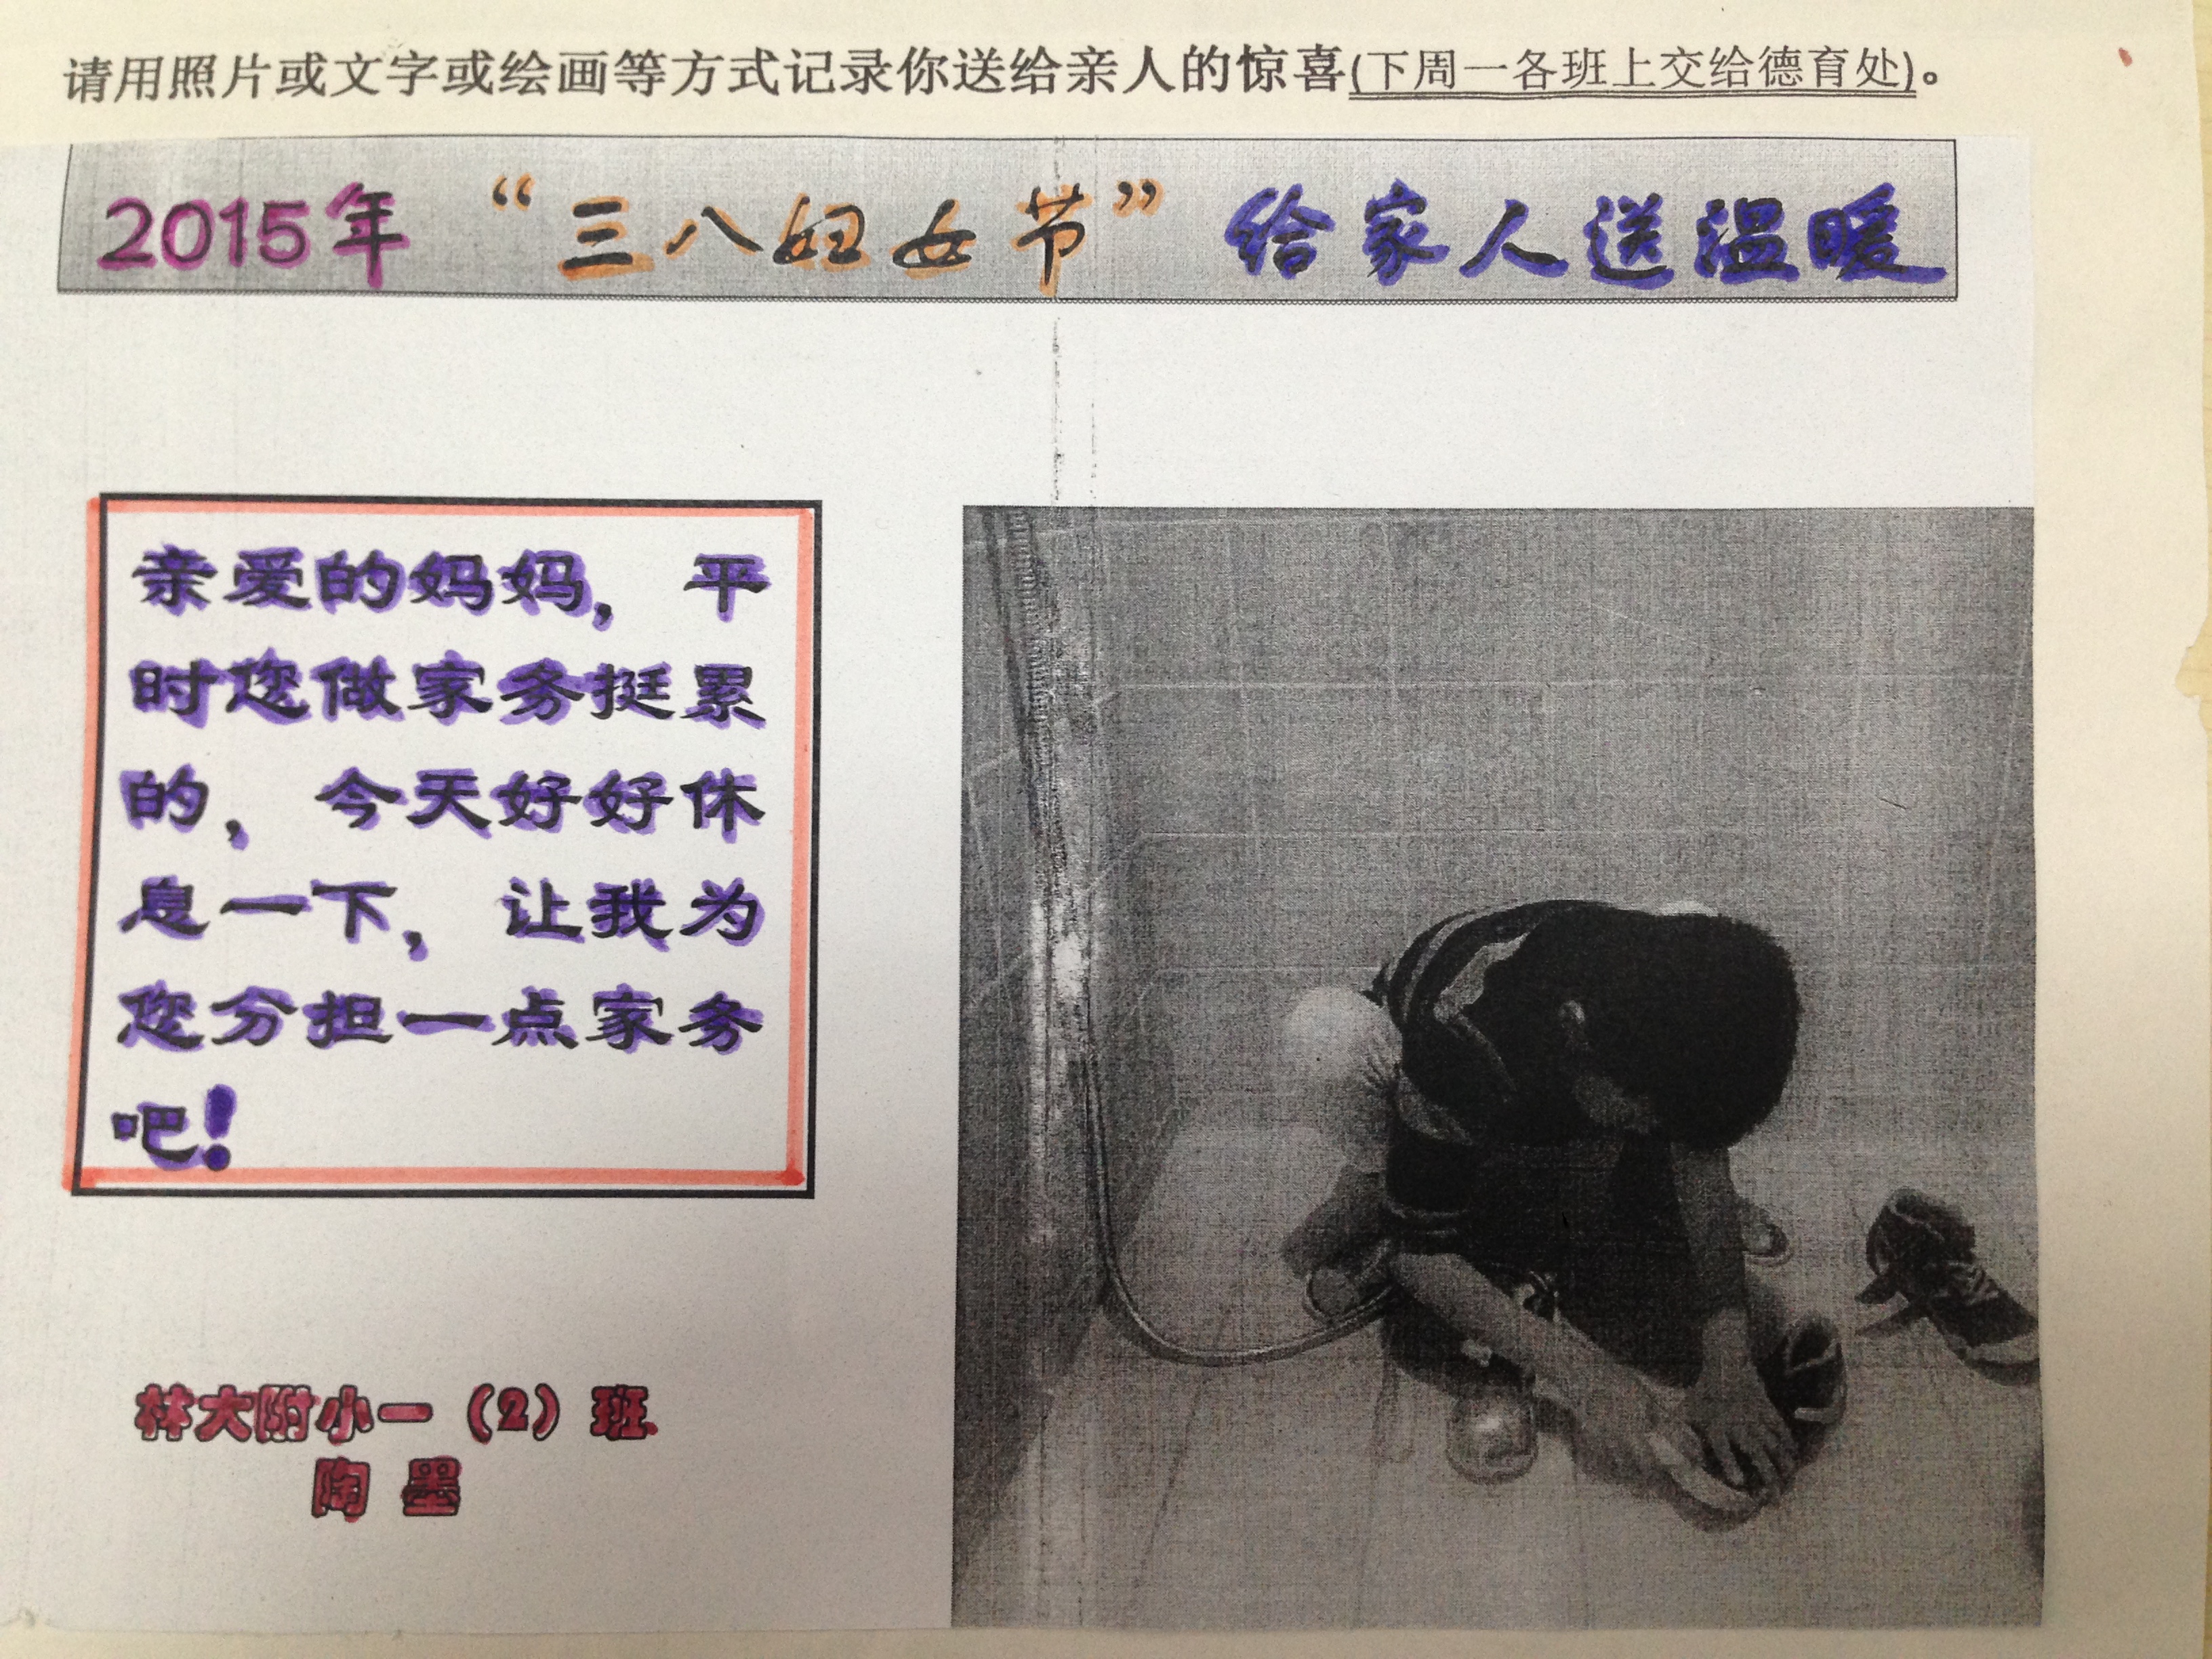 请用照片或文字或绘画等方式记录你送给亲人的惊喜(下周一各班上交给德育处)。
2015年 “三八妇女节” 给家人送温暖
亲爱的妈妈，平
时您做家务挺累
的，今天好好休
息一下，让我为
您分担一点家务
吧！
林大附小一（2）班
陶 墨